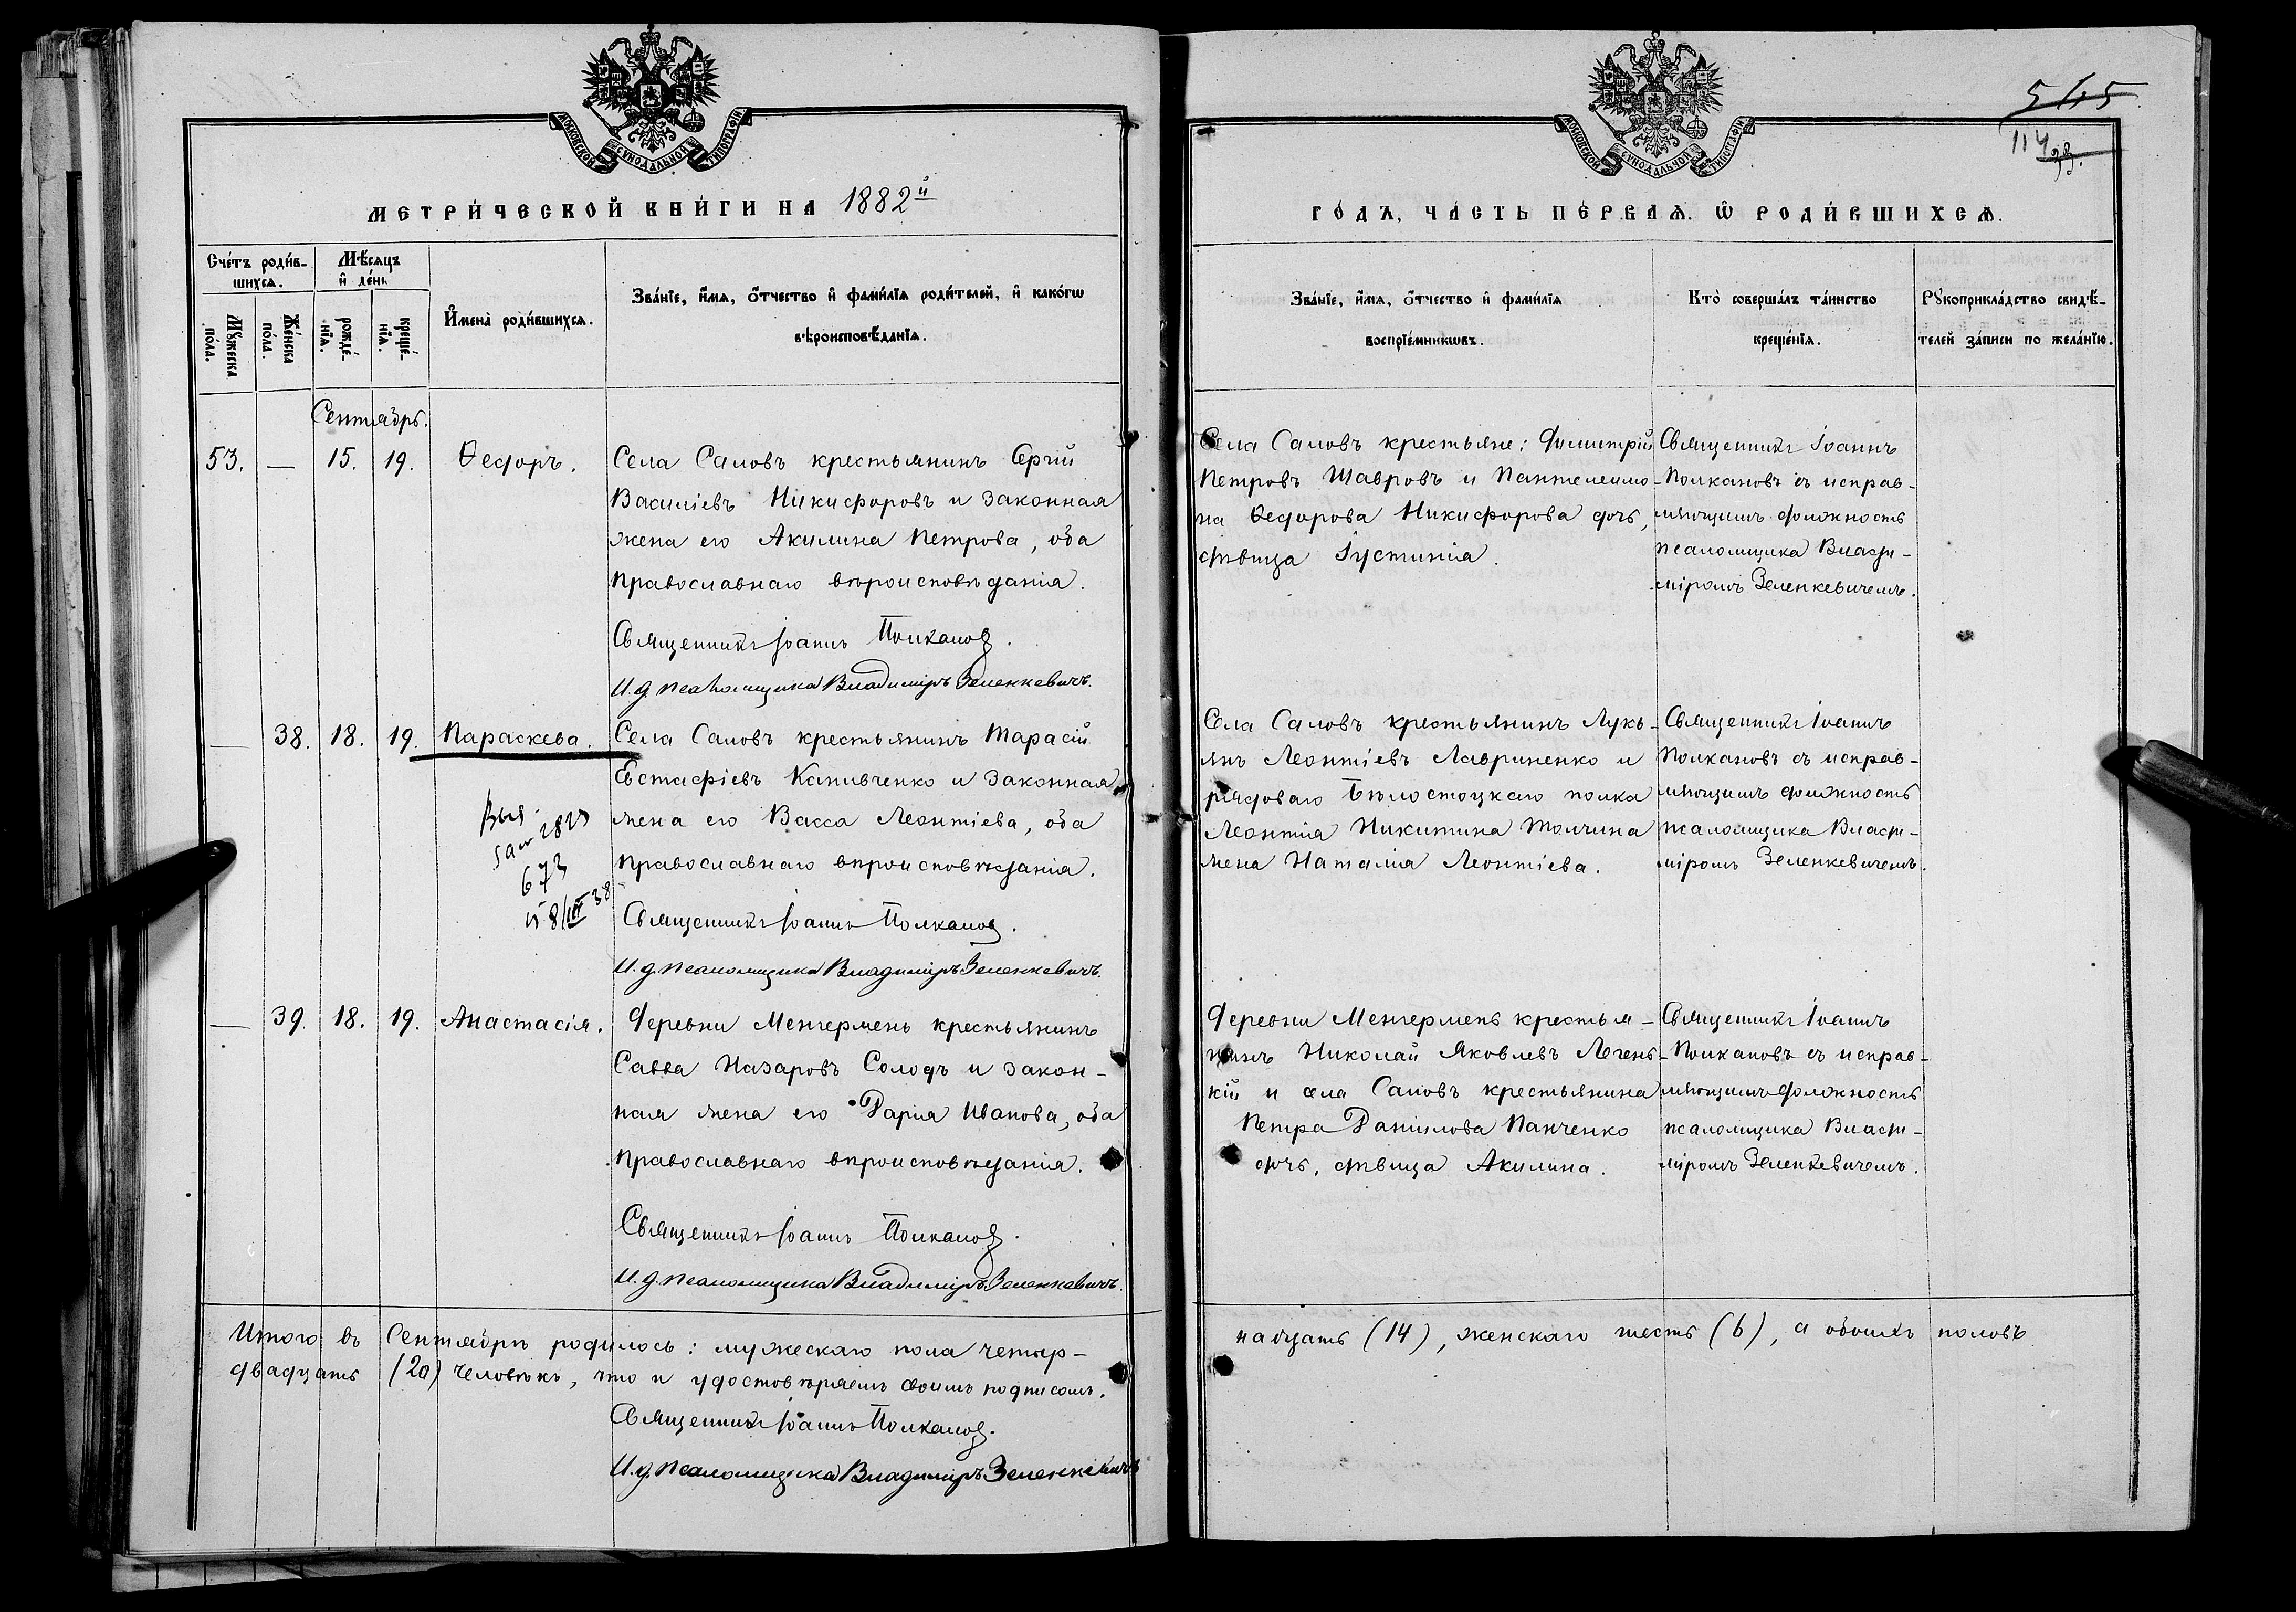 МОСКОВСКОЙ СѴНОДАЛЬНОЙ ТИПОГРАФІИ
МЕТРИ́ЧЕСКОЙ КНИ́ГИ НА 1882й
Сче́тъ роди́в-
шихсѧ.
Мѣ́сѧцъ
и҆ де́нь
Мꙋ́жеска
по́ла.
Же́нска
по́ла.
рожде́-
нїѧ.
креще́-
нїѧ.
И҆мена̀ роди́вшихсѧ.
Зва́нїе, и҆́мѧ, ѻ҆́тчество и҆ фами́лїѧ роди́телей, и҆ како́гѡ
вѣроисповѣ́данїѧ.
Сентябрь.
53. — 15. 19. Ѳедоръ.
Села Саловъ крестьянинъ Сергій
Василіевъ Никифоровъ и законная
жена его Акилина Петрова, оба
православнаго вѣроисповѣданія.
Священникъ Іоаннъ Полкановъ.
И. д. псаломщика Владиміръ Зеленкевичъ.
— 38. 18. 19. Параскева.
Села Саловъ крестьянинъ Тарасій
Евстафіевъ Капивченко и законная
жена его Васса Леонтіева, оба
православнаго вѣроисповѣданія.
673
8/III 38
Священникъ Іоаннъ Полкановъ.
И. д. псаломщика Владиміръ Зеленкевичъ.
— 39. 18. 19. Анастасія.
Деревни Менгермень крестьянинъ
Савва Назаровъ Солодъ и закон-
ная жена его Дарія Иванова, оба
православнаго вѣроисповѣданія.
Священникъ Іоаннъ Полкановъ.
И. д. псаломщика Владиміръ Зеленкевичъ.
Итого въ Сентябрѣ родилось: мужескаго пола четыр-
двадцать (20) человѣкъ, что и удостовѣряемъ своимъ подписомъ.
Священникъ Іоаннъ Полкановъ.
И. д. псаломщика Владиміръ Зеленкевичъ
МОСКОВСКОЙ СѴНОДАЛЬНОЙ ТИПОГРАФІИ
114
33.
ГО́ДЪ, ЧА́СТЬ ПЕ́РВАѦ. Ѡ҆ РОДИ́ВШИХСѦ.
Зва́нїе, и҆́мѧ, ѻ҆́тчество и҆ фами́лїѧ
воспрїе́мникѡвъ.
Кто̀ соверша́лъ та́инство
креще́нїѧ.
Рꙋкоприкла́дство свидѣ́-
телей за́писи по жела́нїю.
Села Саловъ крестьяне: Димитрій
Петровъ Шавровъ и Пантелеимо-
на Ѳедорова Никифорова дочь,
дѣвица Іустинія.
Священникъ Іоаннъ
Полкановъ съ исправ-
ляющимъ должность
псаломщика Влади-
міромъ Зеленкевичемъ.
Села Саловъ крестьянинъ Лукь-
янъ Леонтіевъ Лавриненко и
рядоваго Бѣлостоцкаго полка
Леонтія Никитина Толчина
жена Наталія Леонтіева.
Священникъ Іоаннъ
Полкановъ съ исправ-
ляющимъ должность
псаломщика Влади-
міромъ Зеленкевичемъ.
Деревни Менгермень крестья-
нинъ Николай Яковлевъ Легень-
кій и села Саловъ крестьянина
Петра Данилова Панченко
дочь, дѣвица Акилина.
Священникъ Іоаннъ
Полкановъ съ исправ-
ляющимъ должность
псаломщика Влади-
міромъ Зеленкевичемъ.
надцать (14), женскаго шесть (6), а обоихъ половъ